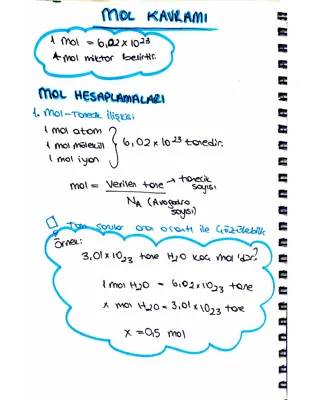 MOL KAVRAMI
1 mol = 6,02 x 10²³
↳ mol miktar belirtir.
MOL HESAPLAMALARI
1. Mol-Tanecik İlişkisi
1 mol atom
1 mol molekül } 6,02 x 10²³ tanedir.
1 mol iyon
mol = Verilen tane → tanecik sayısı
NA (Avogadro sayısı)
Tüm sorular oran orantı ile çözülebilir
Örnek:
3,01 x 10²³ tane H₂O kaç mol'dür?
1 mol H₂O = 6,02 x 10²³ tane
x mol H₂O = 3,01 x 10²³ tane
x = 0,5 mol